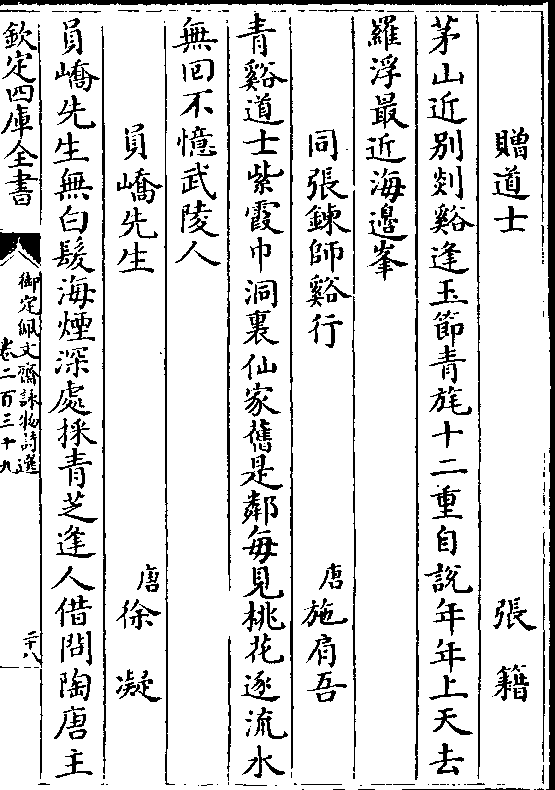 贈道士 張籍
茅山近別剡谿逢玉節青旄十二重自說年年上天去
羅浮最近海邊峯
同張鍊師谿行 唐施肩吾
青谿道士紫霞巾洞裏仙家舊是鄰每見桃花逐流水
無回不憶武陵人
員嶠先生 唐徐凝
員嶠先生無白髮海煙深處採青芝逢人借問陶唐主
欽定四庫全書
御定佩文齋詠物詩選
卷二百三十九
二十八